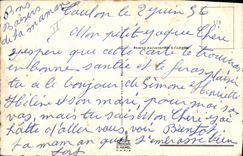 Bons
Baisers
de ta maman
Toulon le 2 juin 56
Mon petit Jacques chéri
j'espère que cette carte te trouvera
en bonne santée et te feras plaisir
tu a le bonjour de Simone et Mariette
Hélène et son mari, pour moi sa
vas, mais tu sais mon cheri j'ai
hâtte d'aller vous voir Bientot
ta maman que t'embrasse bien
fort